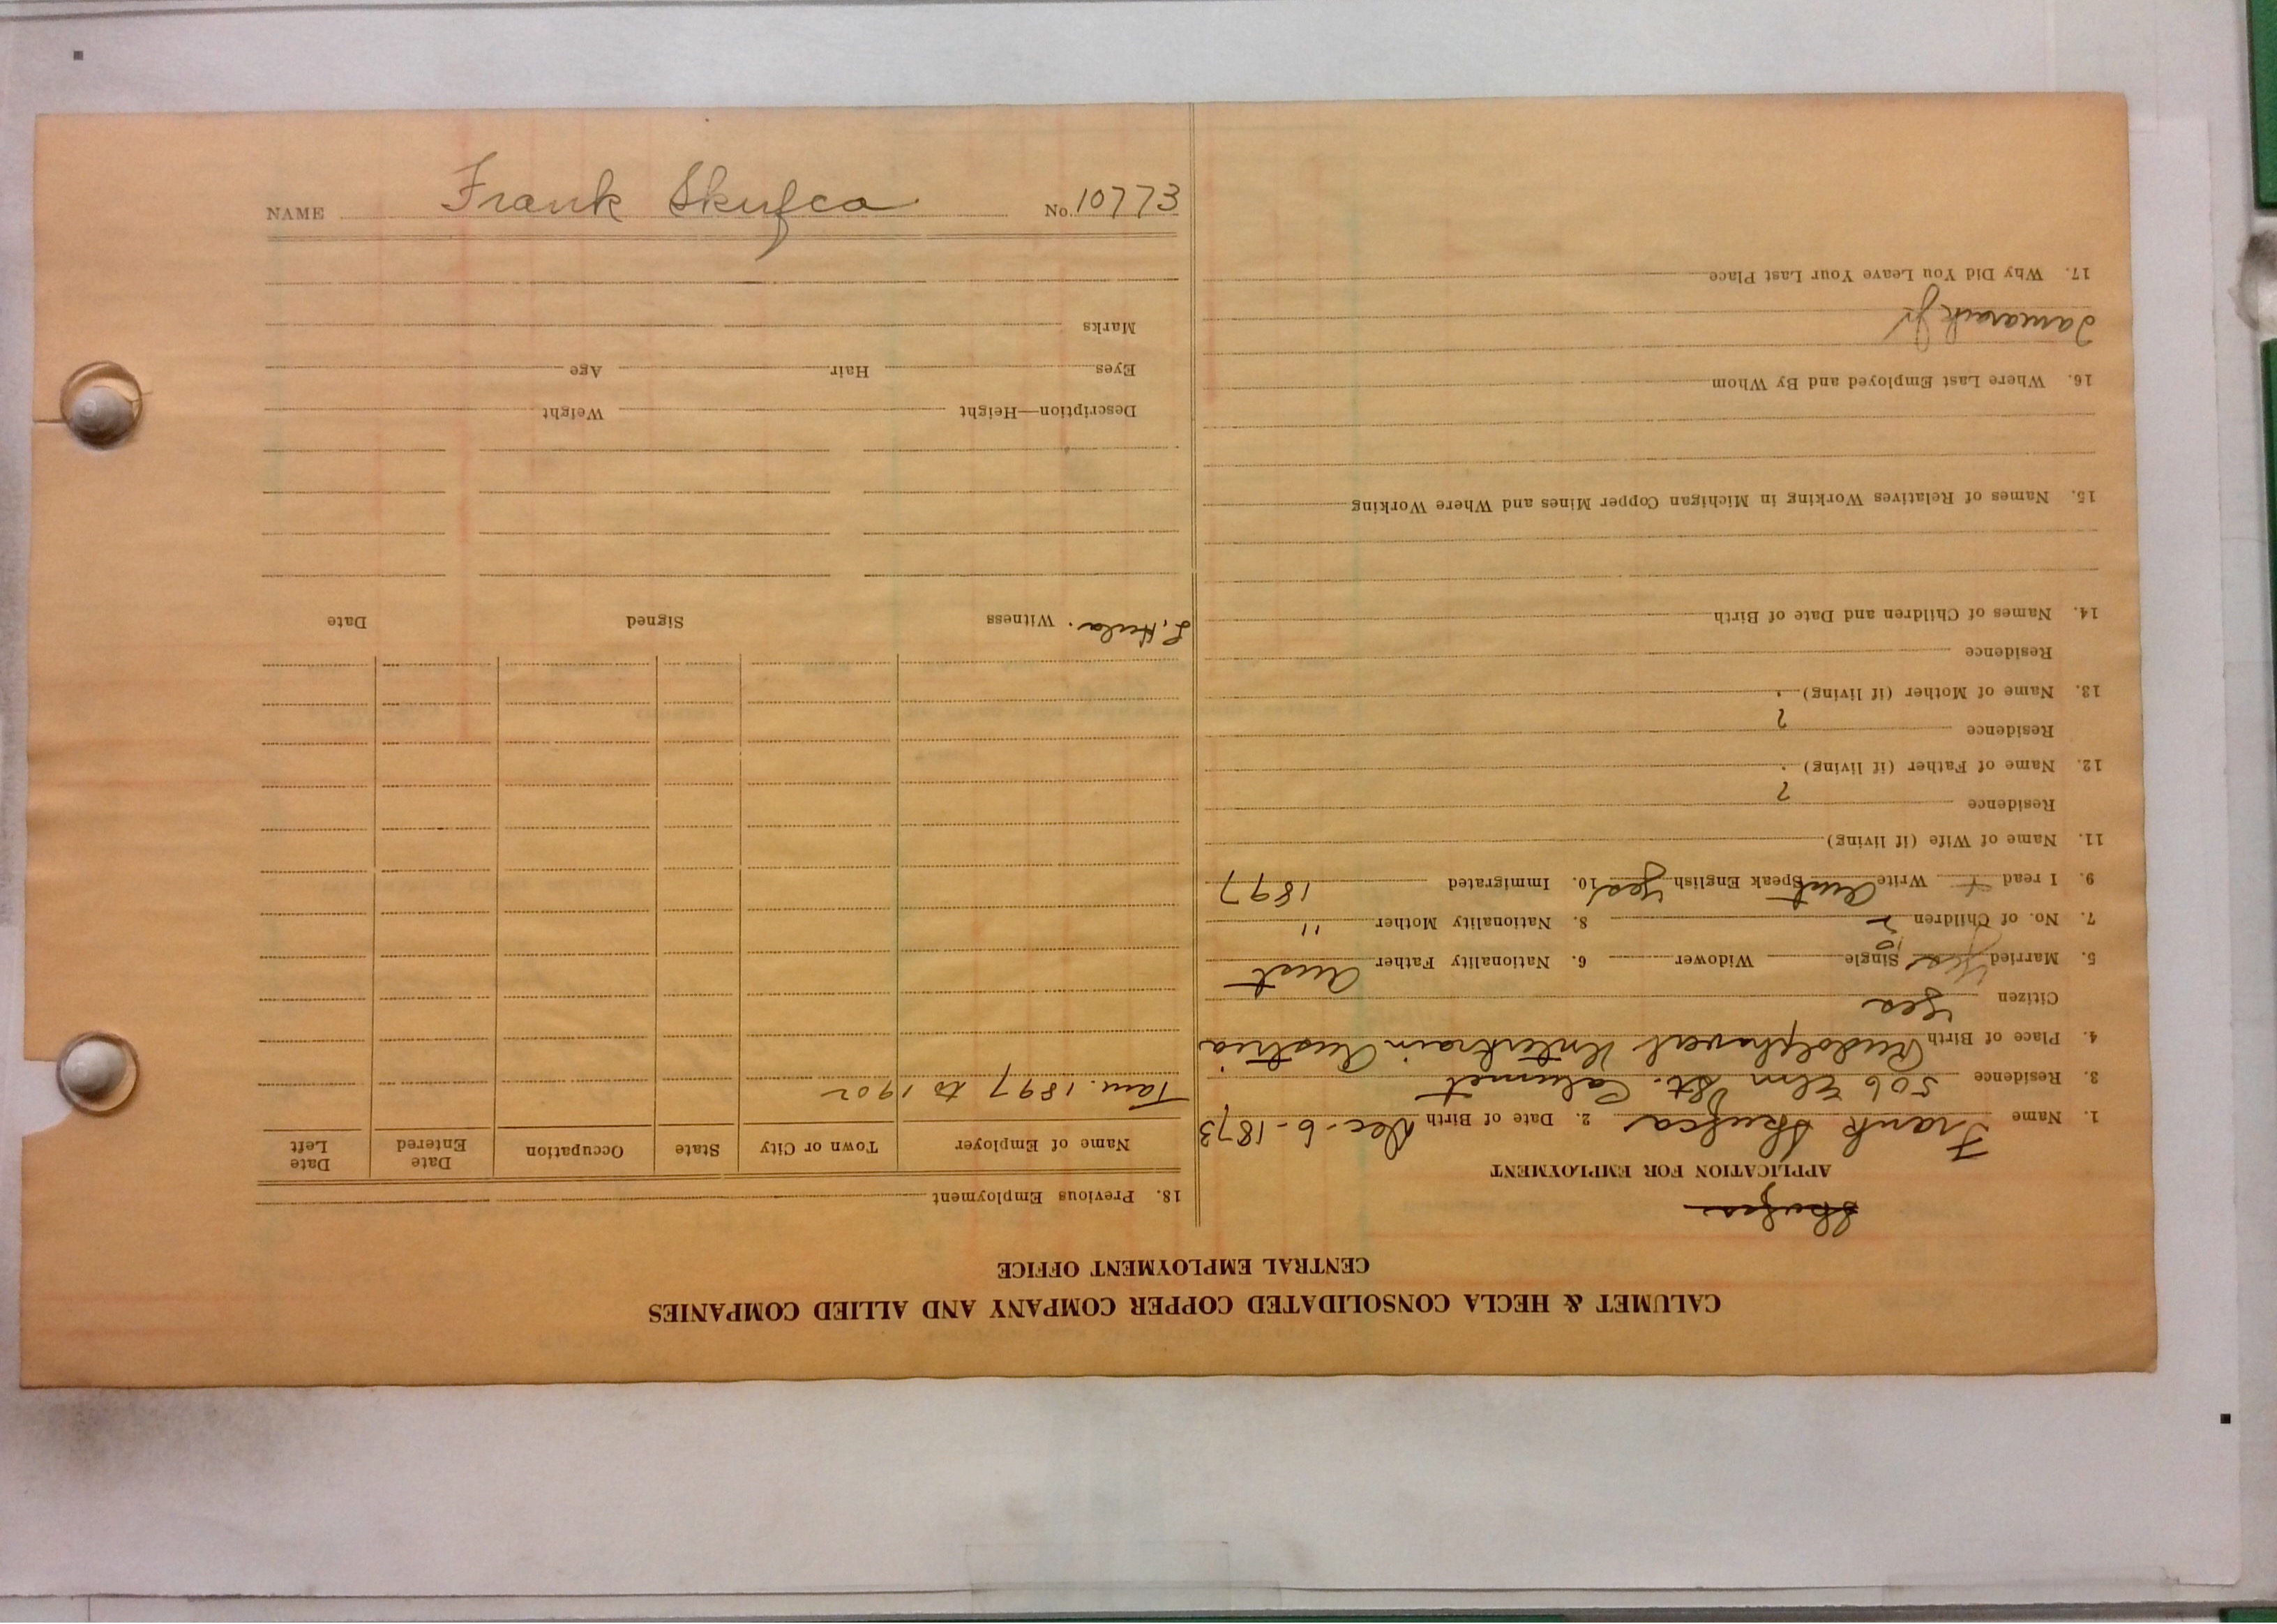 NAME Frank Skufca No. 10773
CALUMET & HECLA CONSOLIDATED COPPER COMPANY AND ALLIED COMPANIES
CENTRAL EMPLOYMENT OFFICE
Skufca
APPLICATION FOR EMPLOYMENT
1. Name Frank Skufca 2. Date of Birth Dec-6-1873
3. Residence 506 Elm St. Calumet
4. Place of Birth Rudolphswert Unterkrain Austria
Citizen Yes
5. Married Yes Single Widower 6. Nationality Father Aust
7. No. of Children 8. Nationality Mother "
9. I read + Write Aust Speak English Yes 10. Immigrated 1897
11. Name of Wife (if living)
Residence ?
12. Name of Father (if living)
Residence ?
13. Name of Mother (if living)
Residence
14. Names of Children and Date of Birth
15. Names of Relatives Working in Michigan Copper Mines and Where Working
16. Where Last Employed and By Whom
Tamarack Jr
17. Why Did You Leave Your Last Place
18. Previous Employment
Name of Employer Town or City State Occupation Date Entered Date Left
Tam. 1897 to 1902
L. Witness Signed Date
Description—Height Weight
Eyes Hair Age
Marks